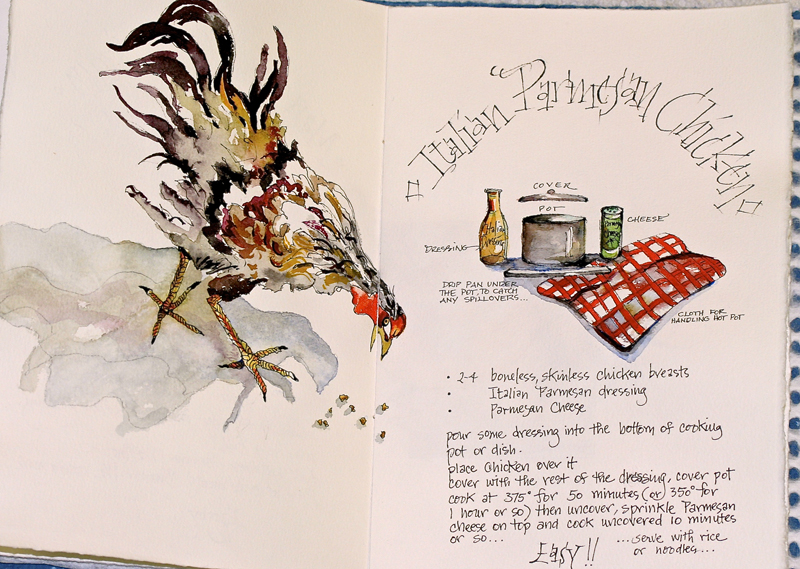 Italian Parmesan Chicken
COVER
POT
CHEESE
DRESSING
Italian
DRIP PAN UNDER
THE POT, TO CATCH
ANY SPILLOVERS...
CLOTH FOR
HANDLING HOT POT
• 2-4 boneless, skinless chicken breasts
• Italian Parmesan dressing
• Parmesan Cheese
pour some dressing into the bottom of cooking
pot or dish.
place chicken over it
cover with the rest of the dressing, cover pot
cook at 375° for 50 minutes (or) 350° for
1 hour or so) then uncover, sprinkle Parmesan
cheese on top and cook uncovered 10 minutes
or so...
Easy!!
...serve with rice
or noodles....